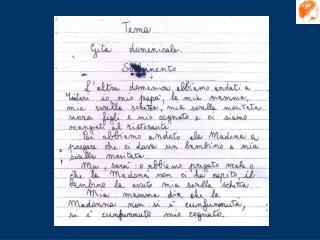 Tema
Gita domenicale.
Svolgimento
L'altra domenica abbiamo andati a
io, mio papà, la mia mamma,
mia sorella schitta, mia sorella maritata
senza figli e mio cognato e ci siamo
mangiati al ristorante.
Poi abbiamo andato ala Madona a
pregare che ci dava un bambino a mia
sorella maritata.
Ma, sarà: o abbiamo pregato male o
che la Madona non ci ha capito, il
bambino la avuto mia sorella schitta.
Mia mamma dia che la
Madonna non si è cunfurmuta,
si è cunfurmuto mio cognato.